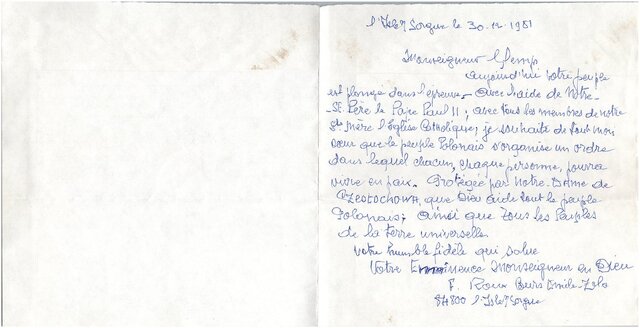 l'Isle s/ Sorgue le 30.12.1981
Monseigneur Glemp
aujourd'hui votre peuple
est plongé dans l'épreuve. avec l'aide de notre
St Père le Pape Paul II; avec tous les membres de notre
Ste Mère l'Eglise Catholique; je souhaite de tout mon
cœur que le peuple Polonais s'organise un ordre
dans lequel chacun, chaque personne, pourra
vivre en paix. Protégée par Notre-Dame de
CZESTOCHOWA, que Dieu aide tout le peuple
Polonais; ainsi que tous les Peuples
de la terre universelle
Votre humble fidèle qui salue
Votre Eminence Monseigneur en Dieu
F. Roux Cours Emile-Zola
84800 l'Isle s/ Sorgue